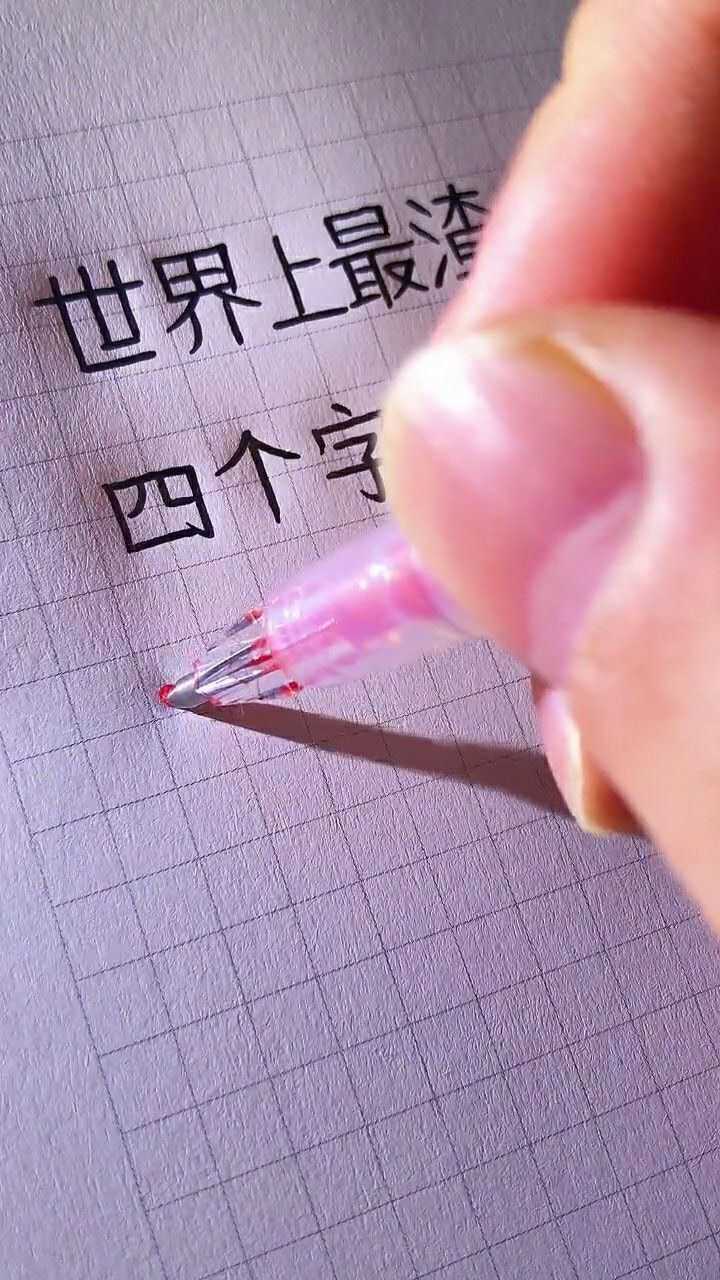 世界上最渣
四个字